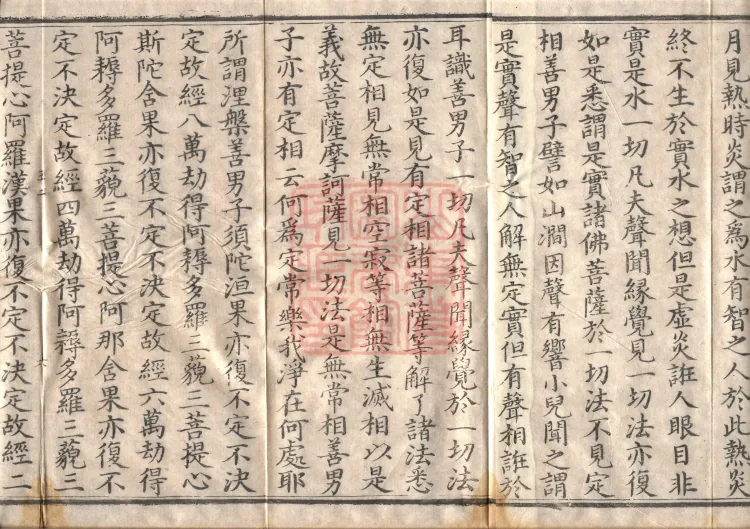 月見熱時炎謂之為水有智之人於此熱炎
終不生於實水之想但是虛炎誑人眼目非
實是水一切凡夫聲聞緣覺見一切法亦復
如是悉謂是實諸佛菩薩於一切法不見定
相善男子譬如山澗因聲有響小兒聞之謂
是實聲有智之人解無定實但有聲相誑於
耳識善男子一切凡夫聲聞緣覺於一切法
亦復如是見有定相諸菩薩等解了諸法悉
無定相見無常相空寂等相無生滅相以是
義故菩薩摩訶薩見一切法是無常相善男
子亦有定相云何為定常樂我淨在何處耶
所謂涅槃善男子須陀洹果亦復不定不決
定故經八萬劫得阿耨多羅三藐三菩提心
斯陀含果亦復不定不決定故經六萬劫得
阿耨多羅三藐三菩提心阿那含果亦復不
定不決定故經四萬劫得阿耨多羅三藐三
菩提心阿羅漢果亦復不定不決定故經二